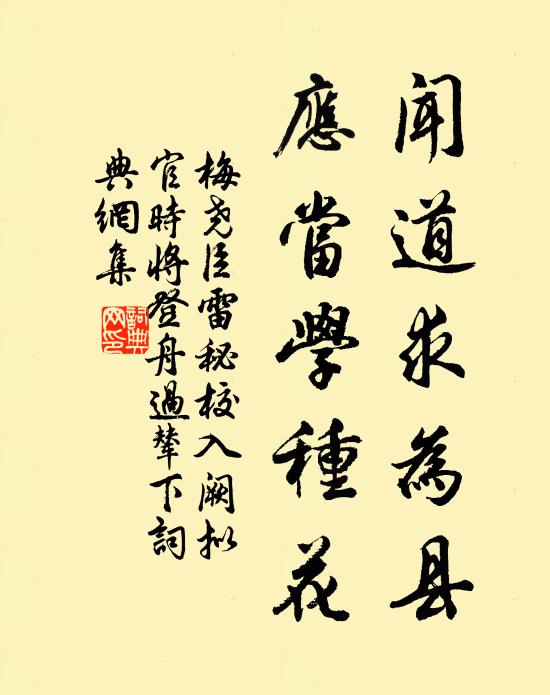 聞道求為县
應當學種花
梅尧臣雷秘校入阙拟
官時将登舟過輦下詞
典網集
詞典网印